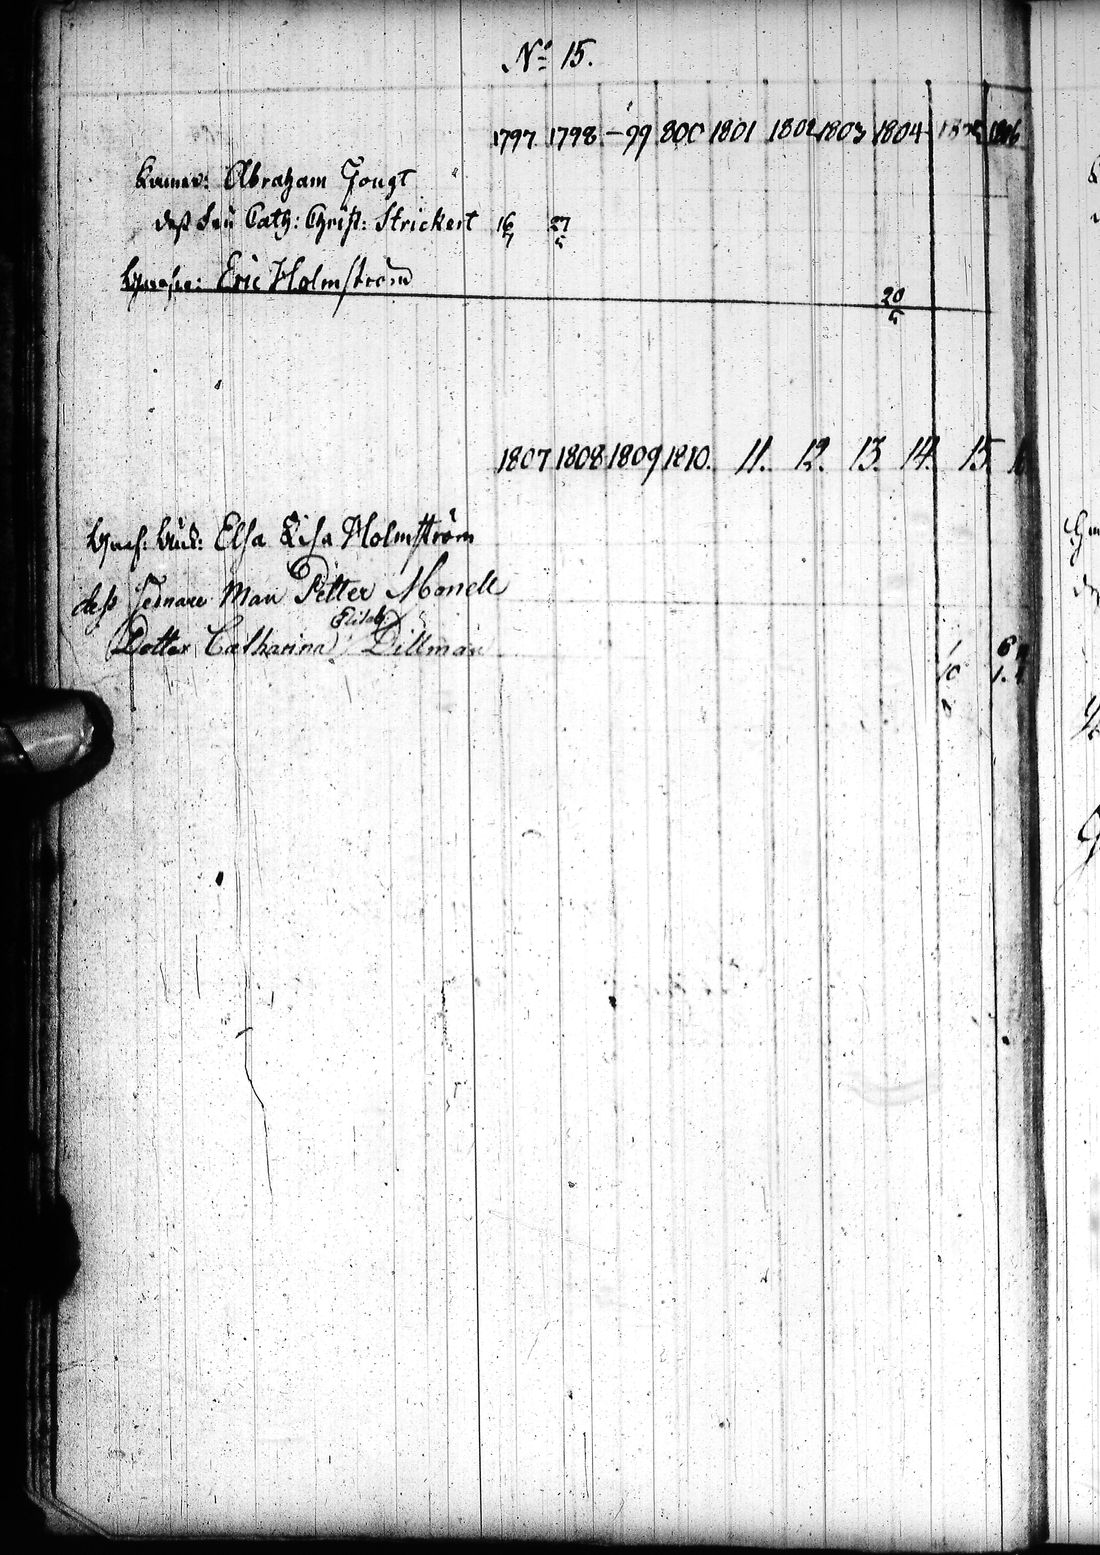 No 15.
1797. 1798. -99 800 1801 1802 1803 1804 1805 1806
Abraham Fougt
dess Fru Cath: Christ: Strickert 16/7 27/5
Eric Holmström
20/5
1807 1808 1809 1810. 11. 12. 13. 14. 15.
Elsa Lisa Holmström
dess sednare Man Petter Monell
Elisab:
Dotter Catharina Dillman
1 6
10 1.